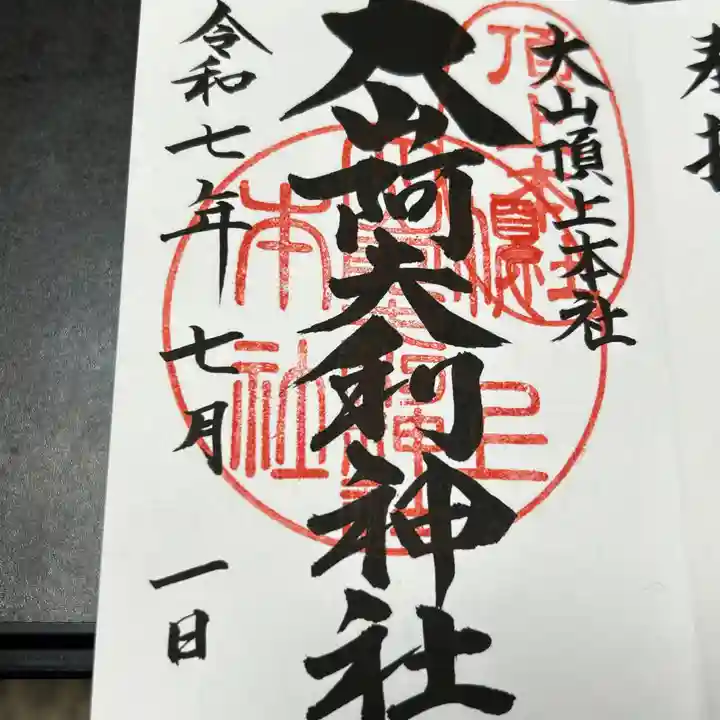 奉拝
大山頂上本社
大山阿夫利神社
令和七年 七月 一日
本社